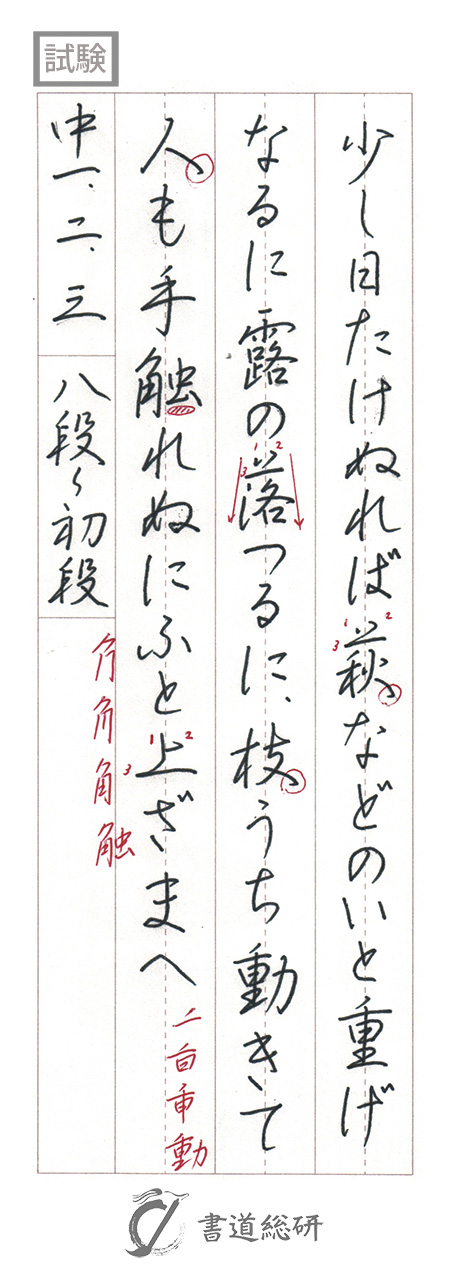 試験
少し日たけぬれば萩などのいと重げ
なるに露の落つるに、枝うち動きて
人も手触れぬにふと上ざまへ
中一、二、三
八段〜初段
角角触
二百重動
書道総研